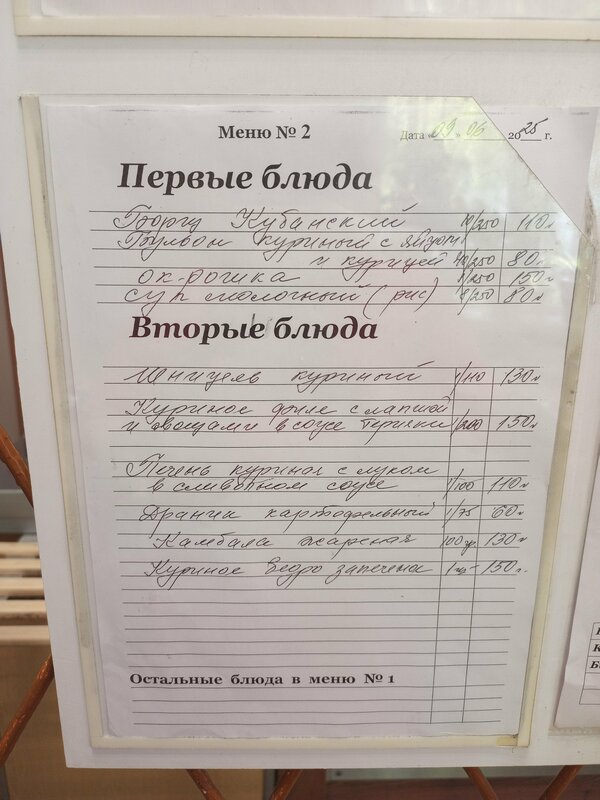 Меню № 2
Дата «09» 06 2025 г.
Первые блюда
Борщ Кубанский 10/250 110
Бульон куриный с яйцом
и курицей 40/250 80
ок-рошка 1/250 150
суп молочный (рис) 1/250 80
Вторые блюда
Шницель куриный 1/110 130
Куриное филе с лапшой
и овощами в соусе Терияки 1/200 150
Печень куриная с луком
в сливочном соусе 1/100 110
Драник картофельный 1/75 60
Камбала жареная 100 гр. 130
Куриное бедро запечена 1 шт - 150
Остальные блюда в меню № 1